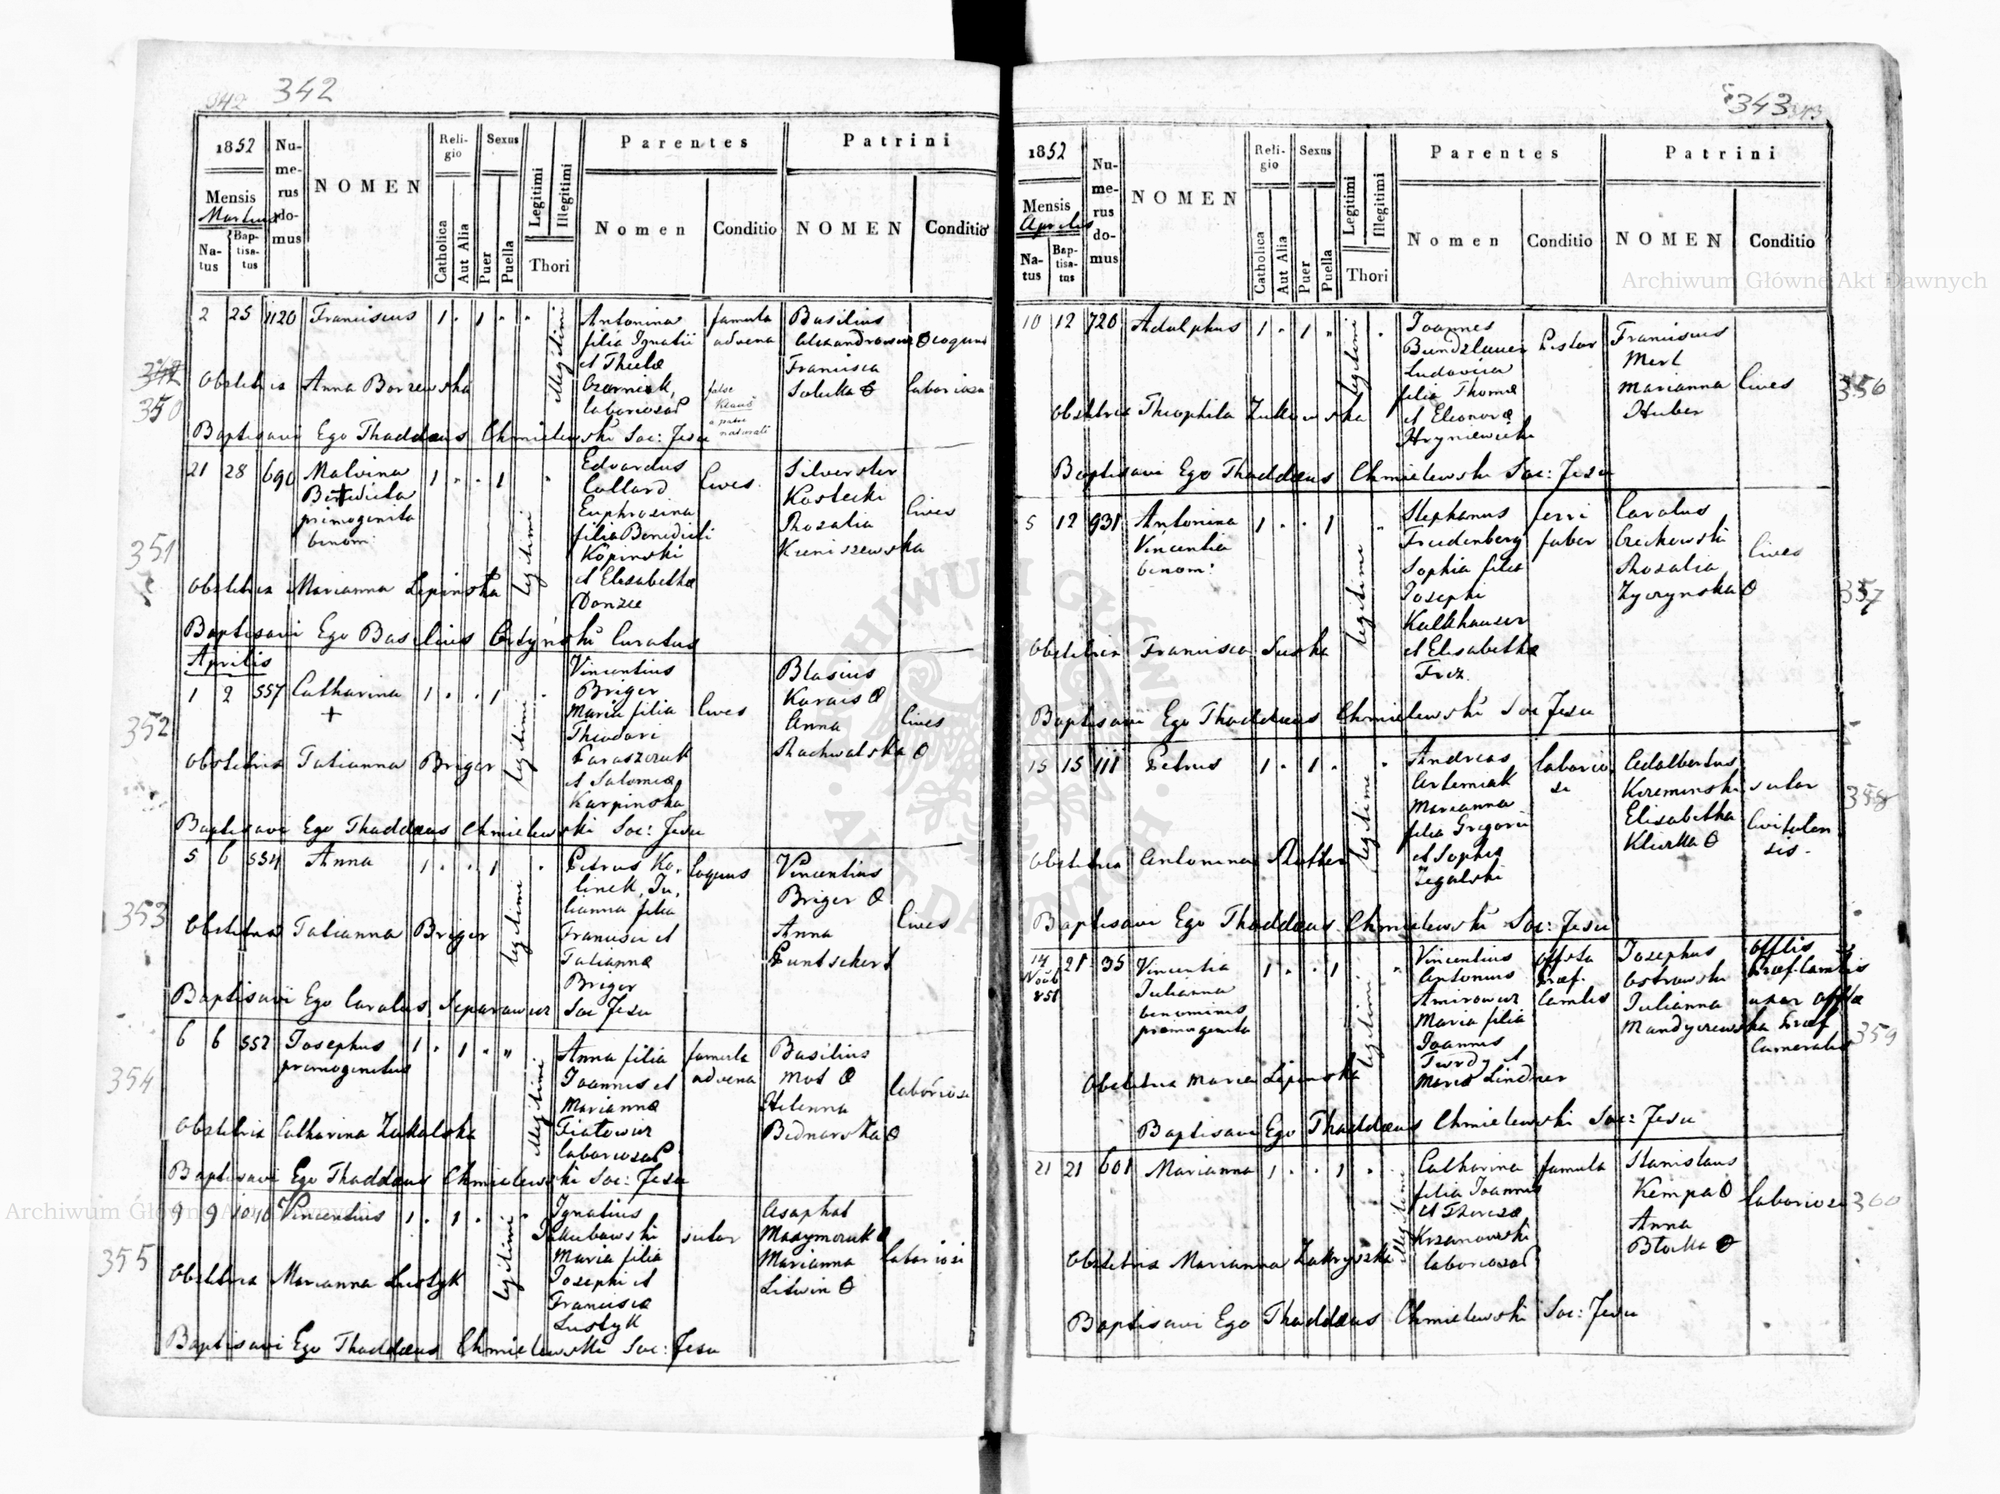 342 342
1852
Mensis
Martius
Natus
Baptisatus
Numerus domus
NOMEN
Religio
Catholica
Aut Alia
Sexus
Puer
Puella
Legitimi
Illegitimi
Thori
Parentes
Nomen
Conditio
Patrini
NOMEN
Conditio
350
2 25 1120 Franciscus 1 " 1 " "
illegitimi
Antonina
filia Ignatii
et Theclæ
laboriosor
famula
advena
Basilius
Francisca
Coquus
laboriosa
Obstetrix Anna Borzewska
Baptisavi Ego Thaddæus Chmielewski Soc: Jesu
351
21 28 690 Malvina
Benedicta
primogenita
binom:
1 " " 1 "
legitimi
Edvardus
Collard
Euphrosina
filia Benedicti
Kopinski
et Elisabethæ
Donzee
Cives
Silvester
Kostecki
Rosalia
Kieniszewska
Cives
Obstetrix Marianna Lipinska
Baptisavi Ego Basilius Ortyński Curatus
Aprilis
352
1 2 557 Catharina
1 " " 1 "
legitimi
Vincentius
Briger
Maria filia
Theodori
Paraszczuk
et Salomeæ
Karpinska
Cives
Blasius
Karais
Anna
Rachwalska
Cives
Obstetrix Tatianna Briger
Baptisavi Ego Thaddæus Chmielewski Soc: Jesu
353
5 6 554 Anna
1 " " 1 "
legitimi
Petrus Ko-
linek, Ju-
lianna filia
Francisci et
Tatiannæ
Briger
Coquus
Vincentius
Briger
Anna
Guntschert
Cives
Obstetrix Tatianna Briger
Baptisavi Ego Carolus Soc Jesu
354
6 6 552 Josephus
primogenitus
1 " 1 " "
illegitimi
Anna filia
Joannis et
Mariannæ
Fiałowicz
laboriosor
famula
advena
Basilius
Mot
Helenna
Bednarska
laboriosi
Obstetrix Catharina Zukalska
Baptisavi Ego Thaddæus Chmielewski Soc: Jesu
355
9 9 1046 Vincentius 1 " 1 " "
legitimi
Ignatius
Jakubowski
Maria filia
Josephi et
Franciscæ
Lustyk
sutor
Asaphat
Maxymczuk
Marianna
Litwin
laboriosi
Obstetrix Marianna Lustyk
Baptisavi Ego Thaddæus Chmielewski Soc: Jesu
343
1852
Mensis
Aprilis
Natus
Baptisatus
Numerus domus
NOMEN
Religio
Catholica
Aut Alia
Sexus
Puer
Puella
Legitimi
Illegitimi
Thori
Parentes
Nomen
Conditio
Patrini
NOMEN
Conditio
356
10 12 720 Adolphus 1 " 1 " "
legitimi
Joannes
Bundzlauer
Ludovica
filia Thomæ
et Eleonoræ
Hryniewicki
Pistor
Franciscus
Merl
Marianna
Huber
Cives
Obstetrix Theophila Zukowska
Baptisavi Ego Thaddæus Chmielewski Soc: Jesu
357
5 12 931 Antonina
Vincentia
binom:
1 " " 1 "
legitimi
Stephanus
Freudenberg
Sophia filia
Josephi
Kulkhauser
et Elisabethæ
ferri
faber
Carolus
Rosalia
Zyczynska
Cives
Obstetrix Francisca Suska
Baptisavi Ego Thaddæus Chmielewski Soc Jesu
358
15 15 111 Petrus 1 " 1 " "
legitimi
Andreas
Artemiak
Marianna
filia Gregorii
et Sophiæ
Zegalski
laborio
si
Adalbertus
Krzeminski
Elisabetha
sutor
Civitaten
sis.
Obstetrix Antonina Rutter
Baptisavi Ego Thaddæus Chmielewski Soc: Jesu
359
14
851
21 35 Vincentia
Julianna
binominis
primogenita
1 " " 1 "
legitimi
Vincentius
Antonius
Amirowicz
Maria filia
Joannis
Twrdy et
Maria Lindner
Josephus
Ostrowski
Julianna
Mandyczewska
uxor
Cameralis
Obstetrix Maria Lipinska
Baptisavi Ego Thaddæus Chmielewski Soc: Jesu
360
21 21 601 Marianna 1 " " 1 "
illegitimi
Catharina
filia Joannis
et Theresæ
Krzanowski
laboriosor
famula
Stanislaus
Kempa
Anna
Błocka
laboriosi
Obstetrix Marianna
Baptisavi Ego Thaddæus Chmielewski Soc: Jesu
Archiwum Główne Akt Dawnych
Archiwum Główne Akt Dawnych
ARCHIWUM GŁÓWNE AKT DAWNYCH